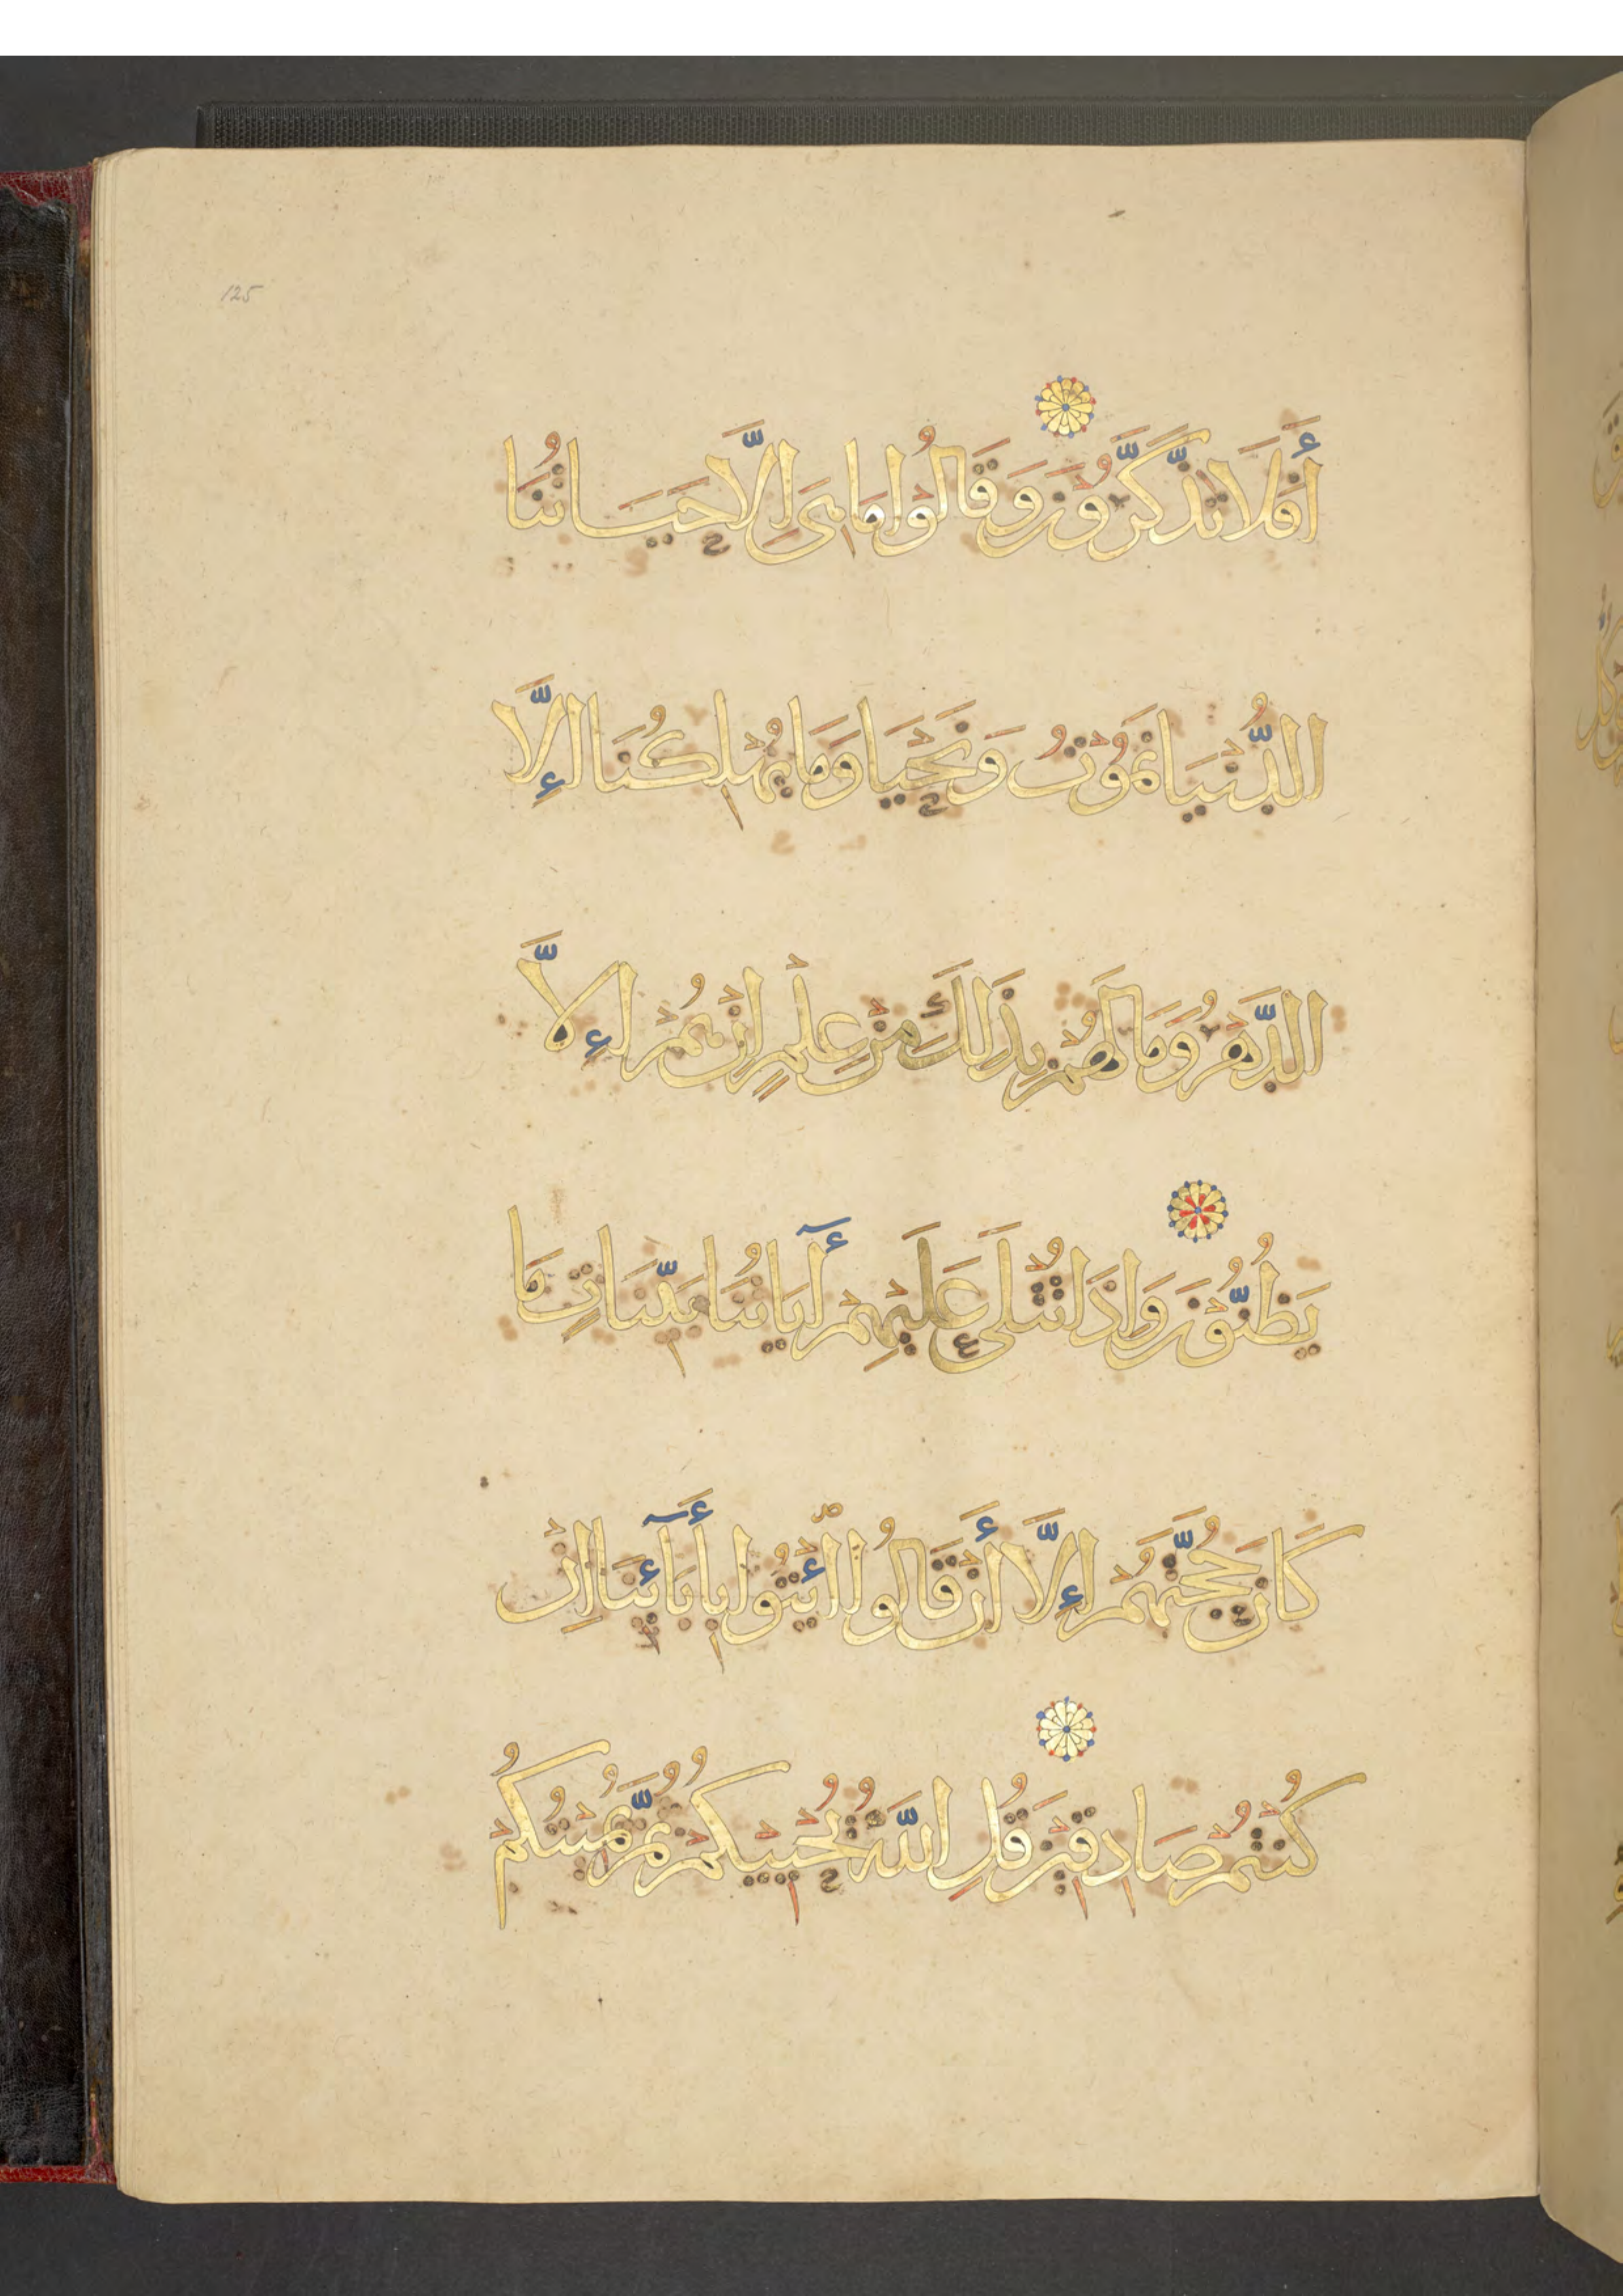 125
أَفَلَا تَذَّكَّرُوْنَ وَقَالُوْا مَا هِيَ إِلَّا حَيَاتُنَا
الدُّنْيَا نَمُوْتُ وَنَحْيَا وَمَا يُهْلِكُنَا إِلَّا
الدَّهْرُ وَمَا لَهُمْ بِذَلِكَ مِنْ عِلْمٍ اِنْ هُمْ إِلَّا
يَظُنُّوْنَ وَاِذَا تُتْلَى عَلَيْهِمْ أٓيَاتُنَا بَيِّنَاتٍ مَا
كَانَ حُجَّتَهُمْ إِلَّا أَنْ قَالُوا ائْتُوْا بِأٓبَائِنَا اِنْ
كُنْتُمْ صَادِقِيْنَ قُلِ اللّٰهُ يُحْيِيْكُمْ ثُمَّ يُمِيْتُكُمْ